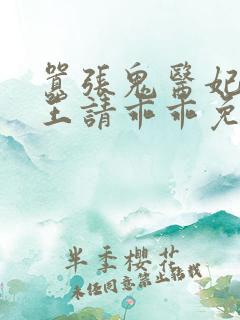 囂張鬼醫妃
王請乖乖免
半季櫻花
未經同意禁止轉載